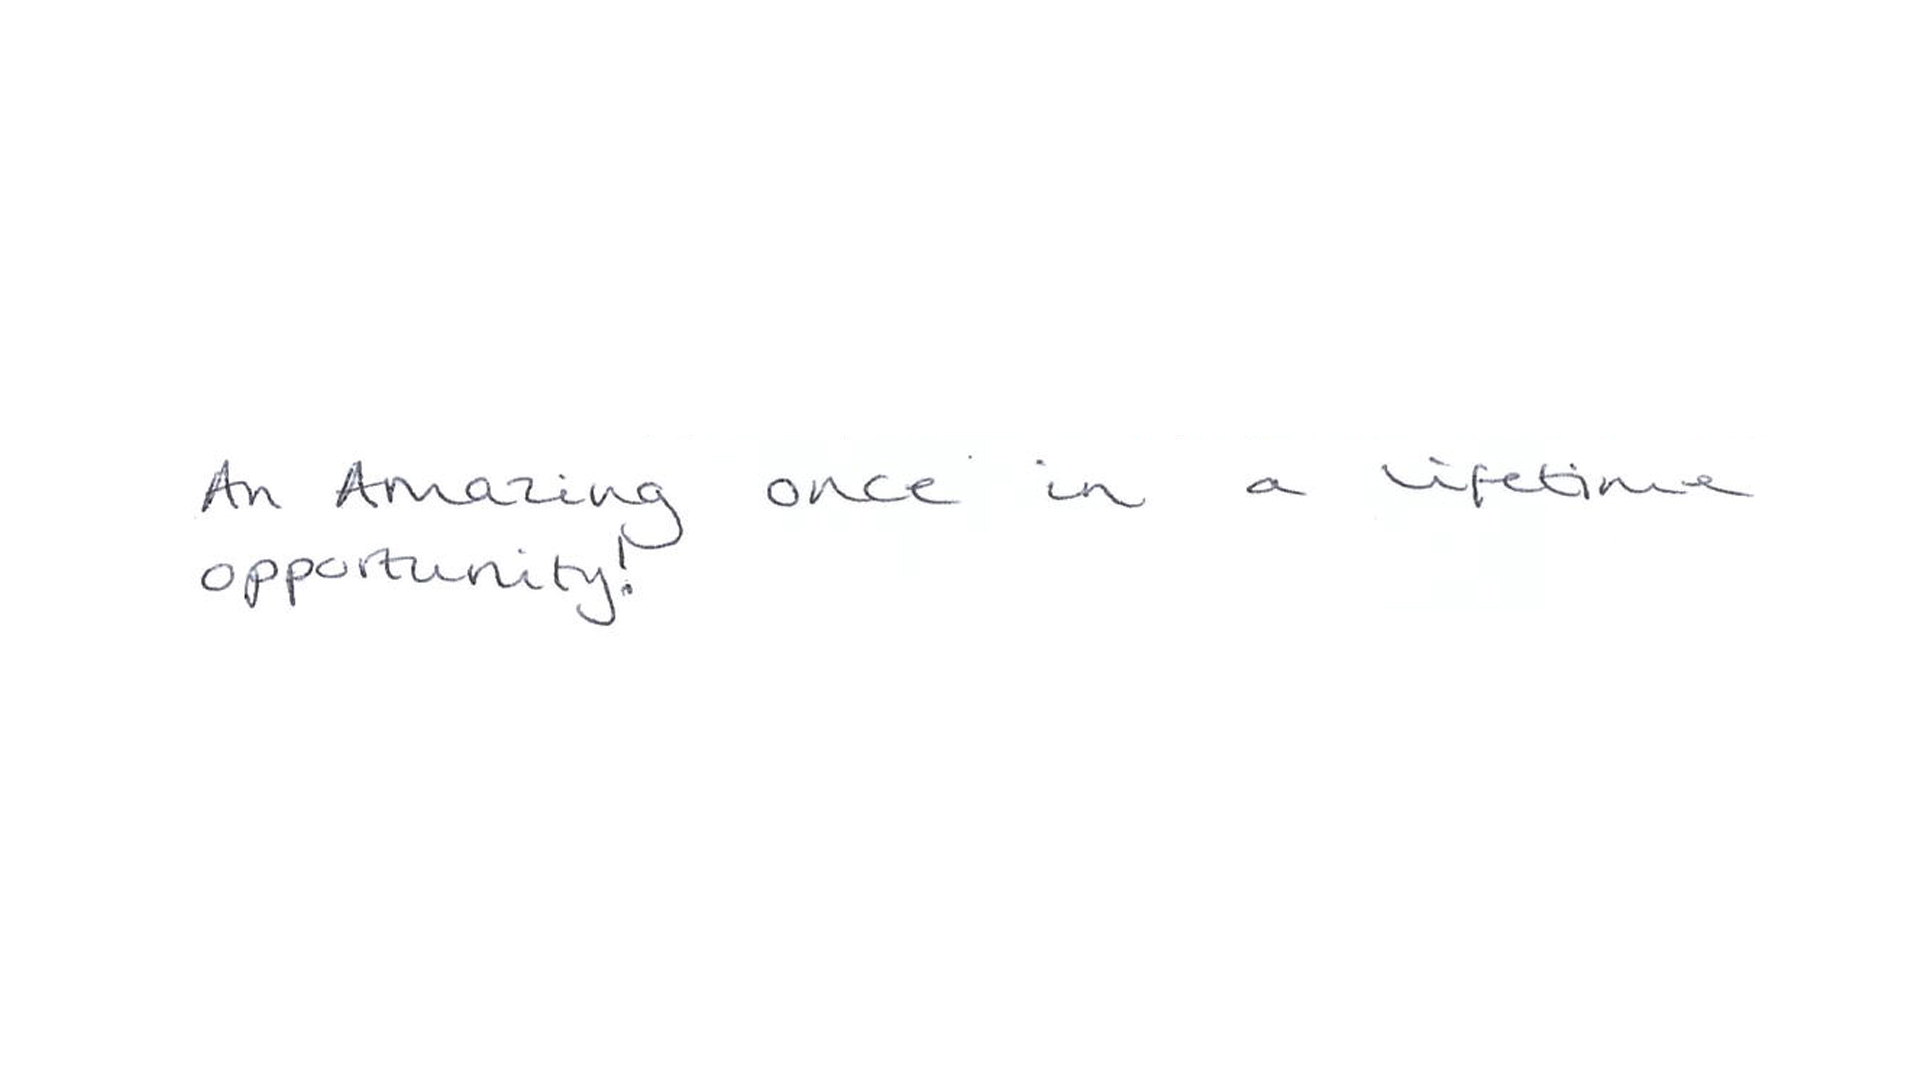 An Amazing once in a lifetime
opportunity!